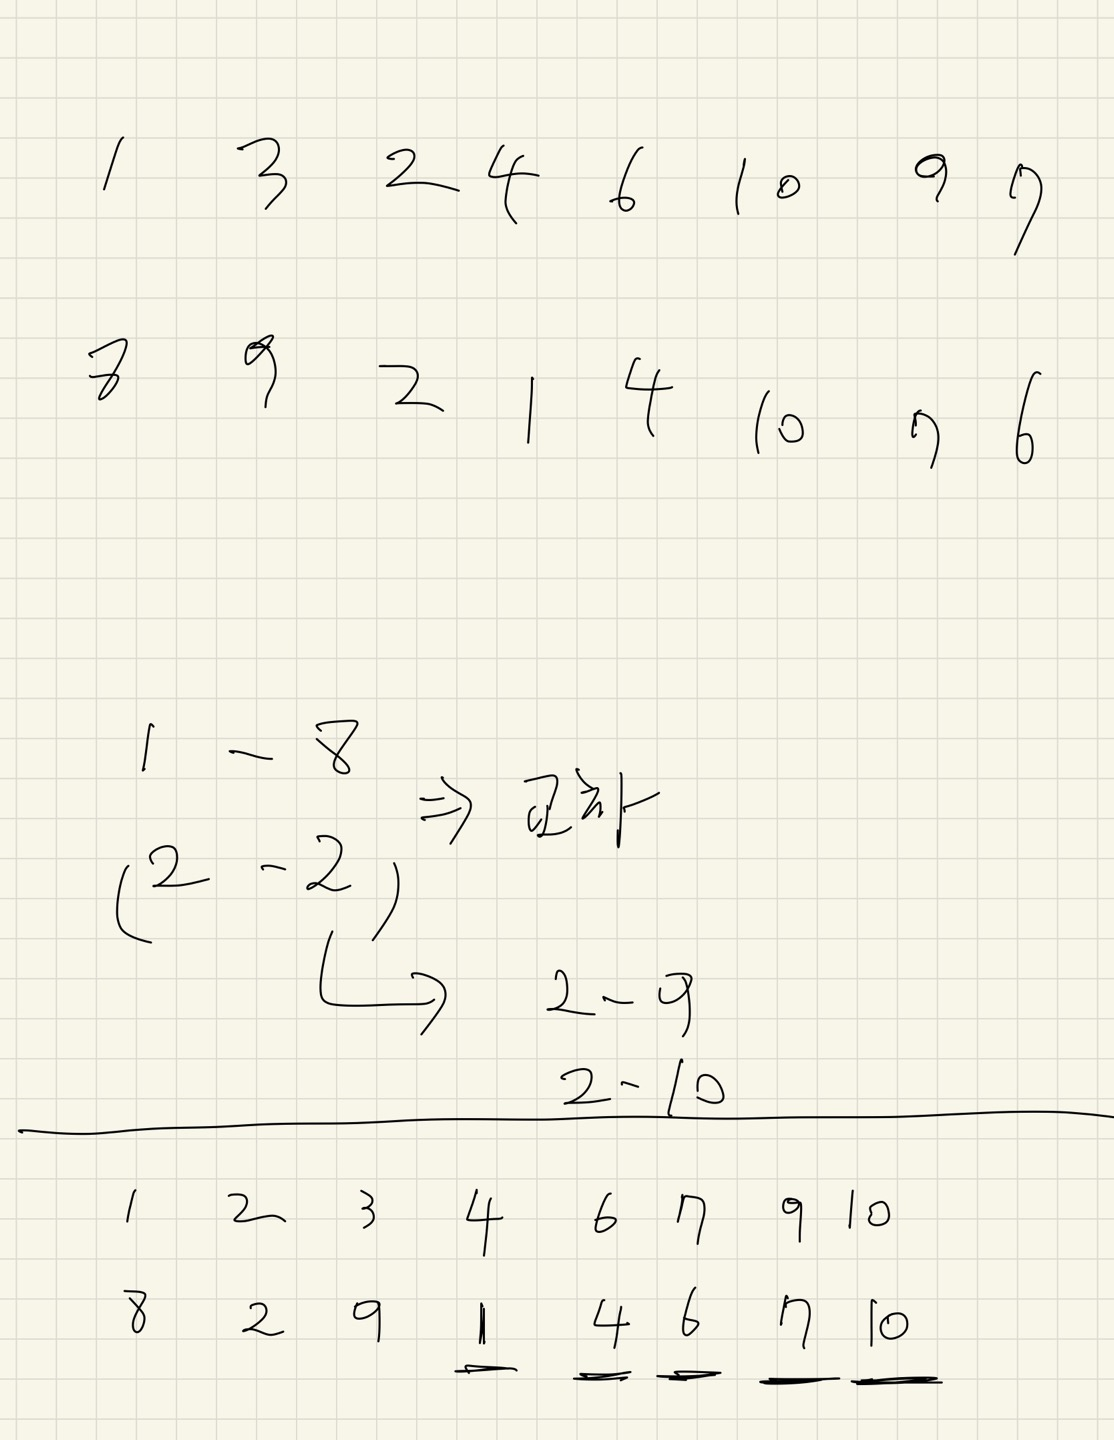 1 3 2 4 6 10 9 7
8 9 2 1 4 10 7 6
1 - 8
⇒ 교차
(2 - 2)
2 - 9
2 - 10
1 2 3 4 6 7 9 10
8 2 9 1 4 6 7 10